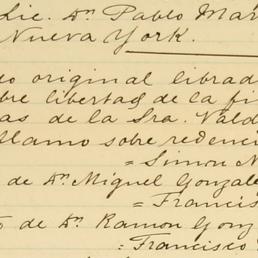 Lic. Dn. Pablo Mar
Nueva York.
o original librad
bre libertad de la fi
as de la Sra. Vald
llamo sobre redenci
= Simon N
de Dn. Miguel Gonzale
= Francis
de Dn. Ramon Gonz
= Francisco